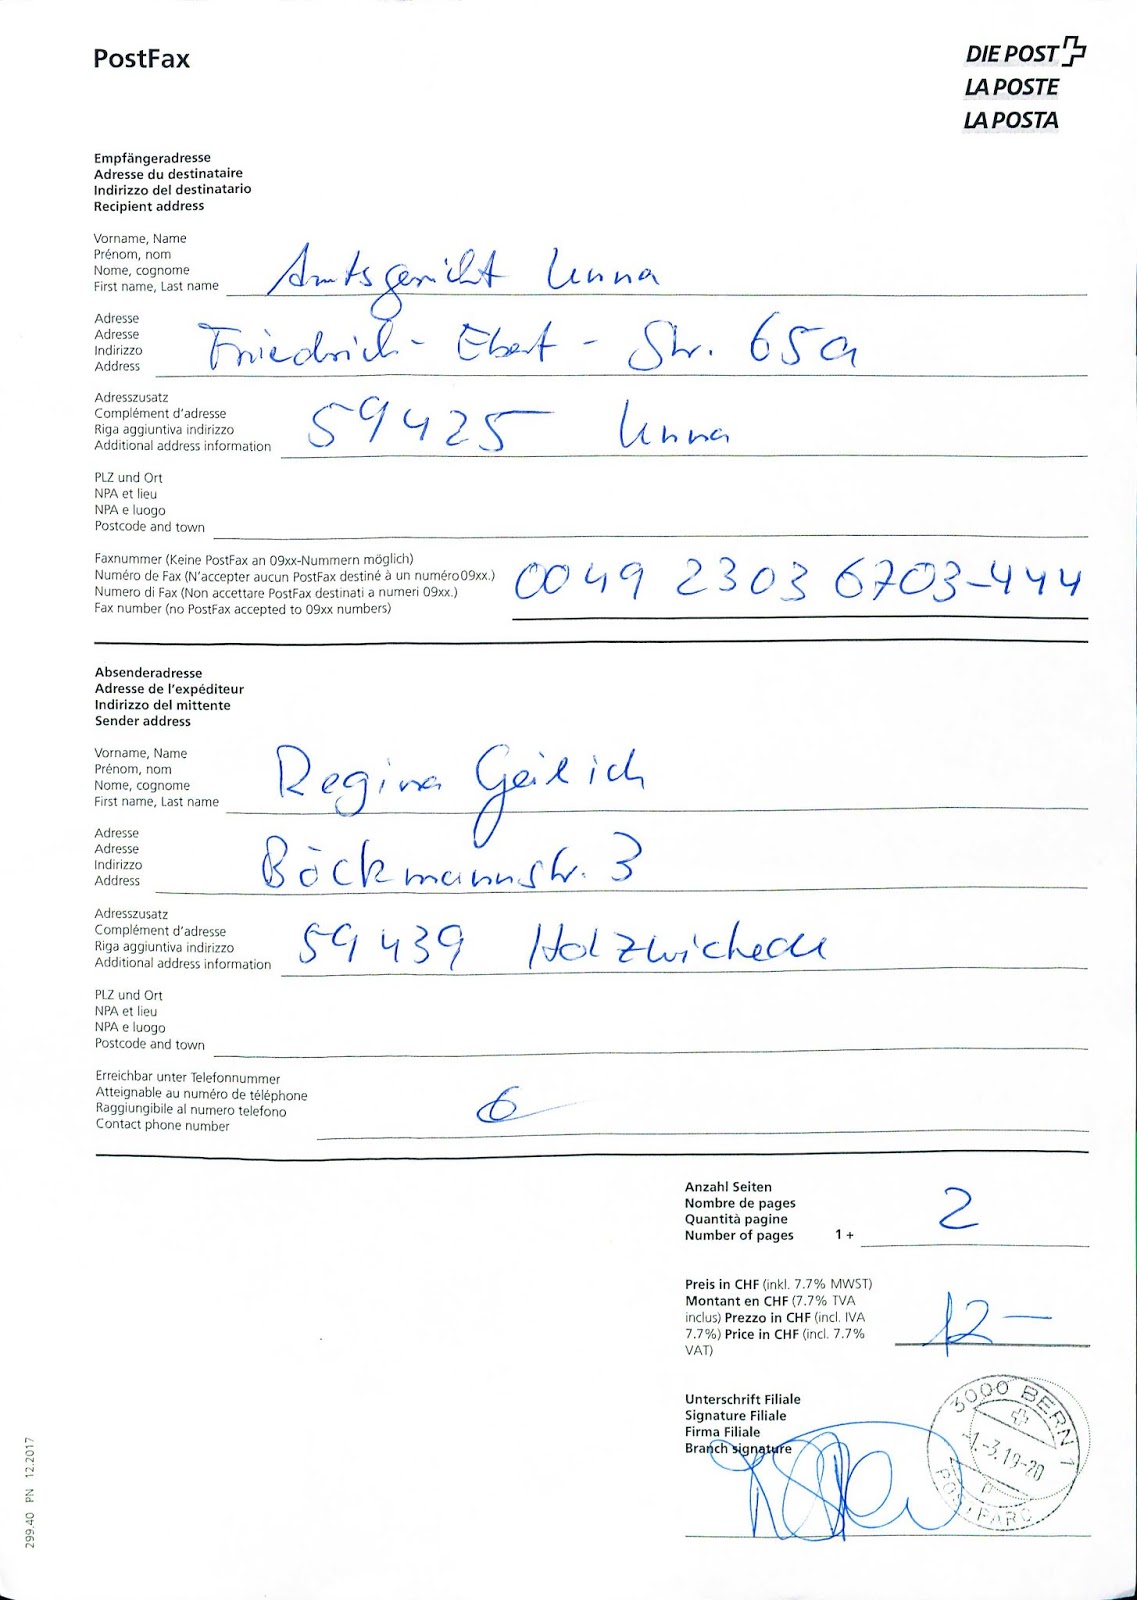 PostFax
DIE POST
LA POSTE
LA POSTA
Empfängeradresse
Adresse du destinataire
Indirizzo del destinatario
Recipient address
Vorname, Name
Prénom, nom
Nome, cognome
First name, Last name
Amtsgericht Unna
Adresse
Adresse
Indirizzo
Address
Friedrich-Ebert-Str. 65a
Adresszusatz
Complément d'adresse
Riga aggiuntiva indirizzo
Additional address information
59425 Unna
PLZ und Ort
NPA et lieu
NPA e luogo
Postcode and town
Faxnummer (Keine PostFax an 09xx-Nummern möglich)
Numéro de Fax (N'accepter aucun PostFax destiné à un numéro09xx.)
Numero di Fax (Non accettare PostFax destinati a numeri 09xx.)
Fax number (no PostFax accepted to 09xx numbers)
0049 2303 6703-444
Absenderadresse
Adresse de l'expéditeur
Indirizzo del mittente
Sender address
Vorname, Name
Prénom, nom
Nome, cognome
First name, Last name
Regina
Adresse
Adresse
Indirizzo
Address
Böckmannstr. 3
Adresszusatz
Complément d'adresse
Riga aggiuntiva indirizzo
Additional address information
59439 Holzwickede
PLZ und Ort
NPA et lieu
NPA e luogo
Postcode and town
Erreichbar unter Telefonnummer
Atteignable au numéro de téléphone
Raggiungibile al numero telefono
Contact phone number
Anzahl Seiten
Nombre de pages
Quantità pagine
Number of pages 1 + 2
Preis in CHF (inkl. 7.7% MWST)
Montant en CHF (7.7% TVA
inclus) Prezzo in CHF (incl. IVA
7.7%) Price in CHF (incl. 7.7%
VAT)
12—
Unterschrift Filiale
Signature Filiale
Firma Filiale
Branch signature
3000 BERN 1
-1.-3.19-20
POSTPARC
299.40 PN 12.2017